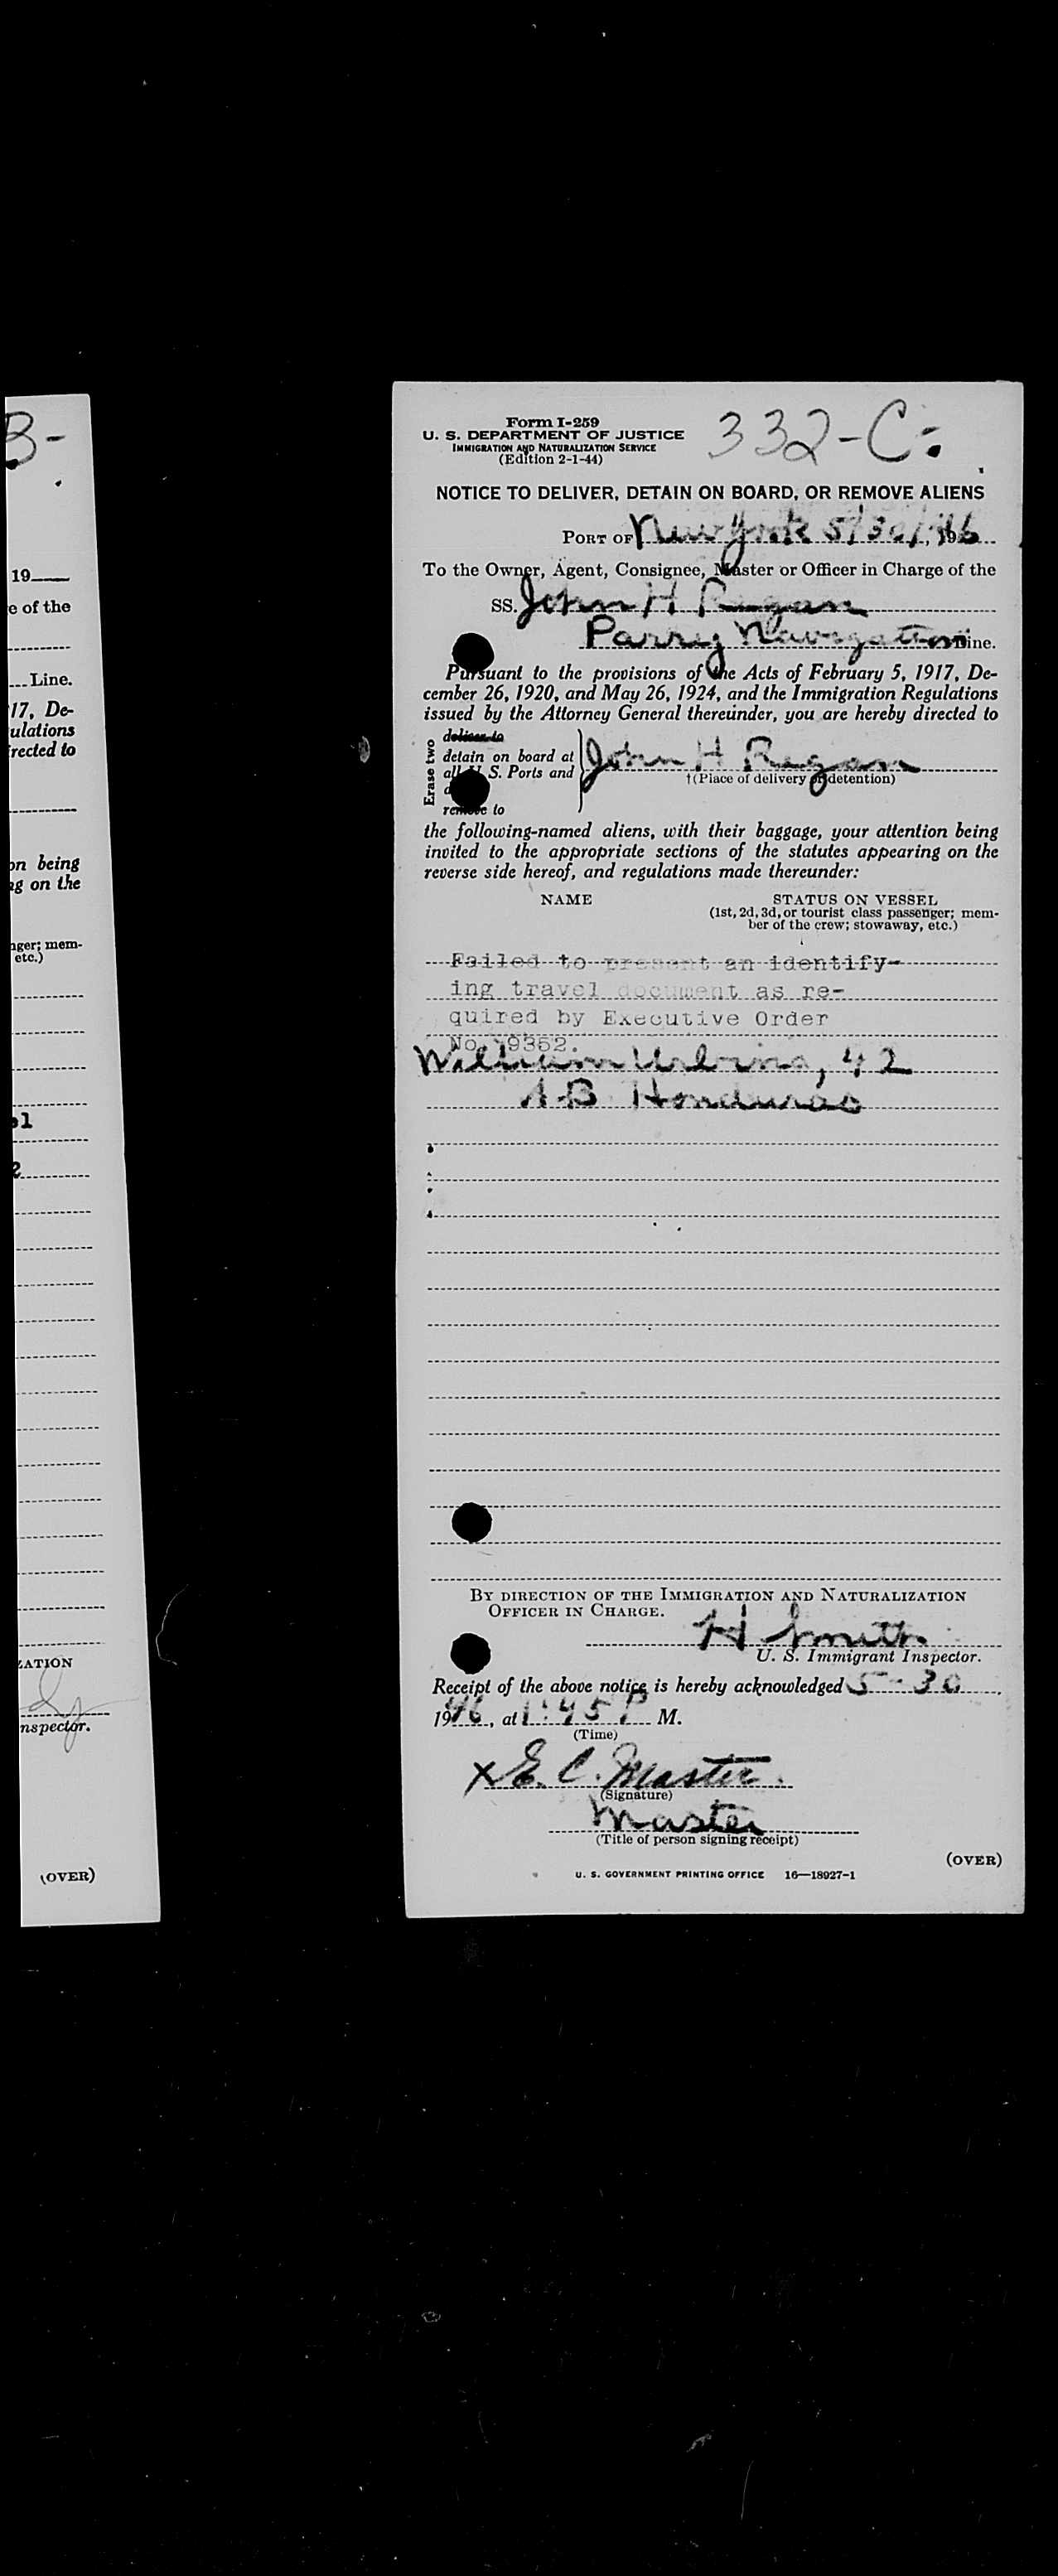 B-
19
e of the
Line.
17, De-
ulations
rected to
on being
ng on the
nger; mem-
etc.)
el
2
ZATION
nspector.
(OVER)
Form I-259
U. S. DEPARTMENT OF JUSTICE
IMMIGRATION AND NATURALIZATION SERVICE
(Edition 2-1-44)
332-C-
NOTICE TO DELIVER, DETAIN ON BOARD, OR REMOVE ALIENS
PORT OF New York 5/30/, 1946
To the Owner, Agent, Consignee, Master or Officer in Charge of the
SS. John H Regan
Parry Navigation Line.
Pursuant to the provisions of the Acts of February 5, 1917, De-
cember 26, 1920, and May 26, 1924, and the Immigration Regulations
issued by the Attorney General thereunder, you are hereby directed to
Erase two
deliver to
detain on board at
all U. S. Ports and
remove to
John H Regan
†(Place of delivery or detention)
the following-named aliens, with their baggage, your attention being
invited to the appropriate sections of the statutes appearing on the
reverse side hereof, and regulations made thereunder:
NAME
STATUS ON VESSEL
(1st, 2d, 3d, or tourist class passenger; mem-
ber of the crew; stowaway, etc.)
Failed to present an identify-
ing travel document as re-
quired by Executive Order
No. 9352.
William Urbina, 42
AB Honduras
BY DIRECTION OF THE IMMIGRATION AND NATURALIZATION
OFFICER IN CHARGE.
H Smith
U. S. Immigrant Inspector.
Receipt of the above notice is hereby acknowledged 5-30,
1946, at 1:45 P M.
(Time)
X E. C. Master
(Signature)
Master
(Title of person signing receipt)
(OVER)
U. S. GOVERNMENT PRINTING OFFICE 16—18927-1